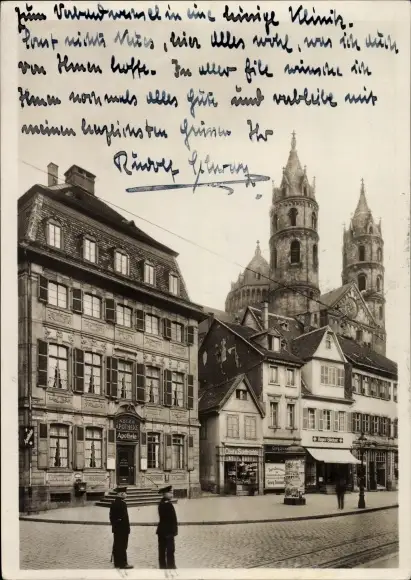 zum Verbandwechsel in eine hiesige Klinik.
Sonst nichts Neues, hier alles wohl, was ich auch
von Ihnen hoffe. In aller Eile wünsche ich
Ihnen nochmals alles Gute und verbleibe mit
meinen herzlichsten Grüssen Ihr
Rudolf
Apotheke